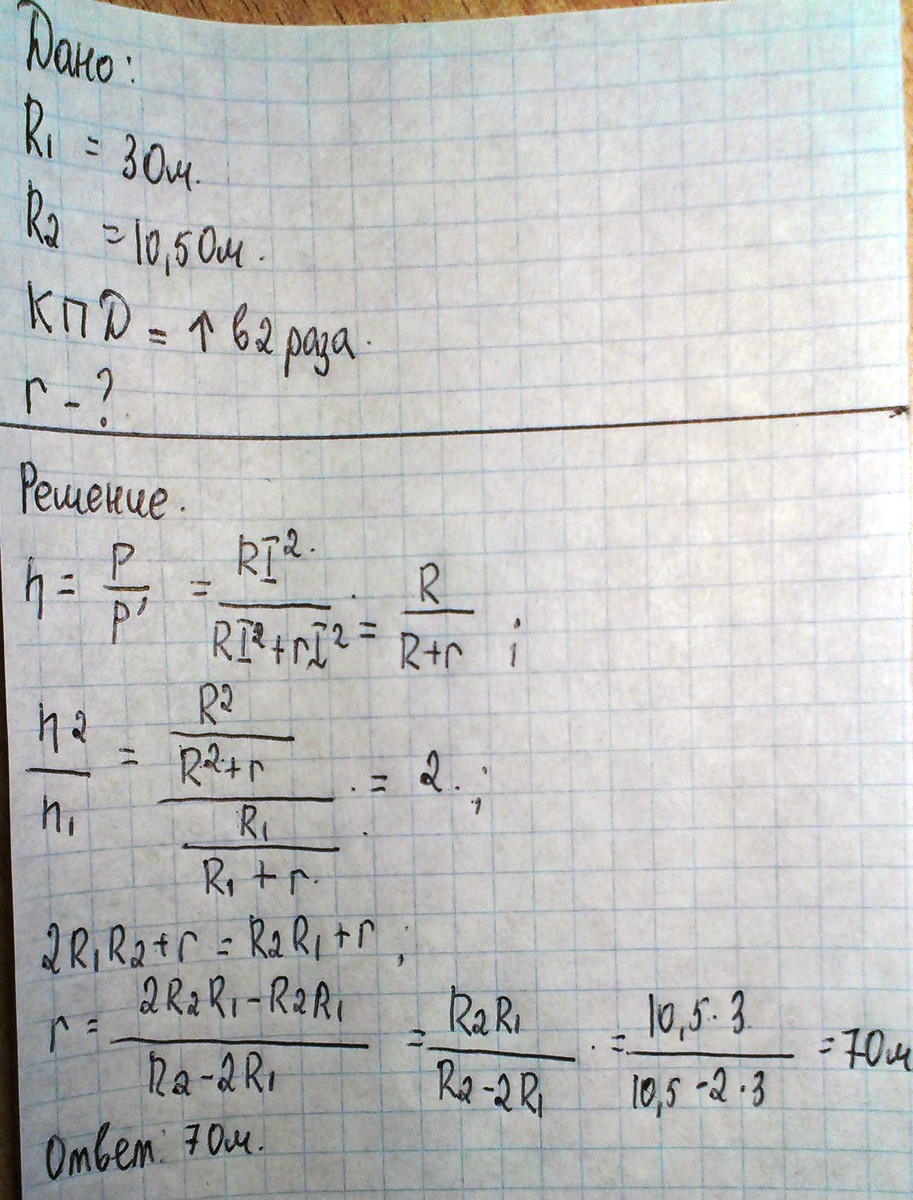 Дано:
R₁ = 3Ом.
R₂ = 10,5Ом.
КПД = ↑ в 2 раза.
r - ?
Решение.
η = P/P' = RI²/(RI²+rI²) = R/(R+r) ;
η2/η₁ = (R2/(R2+r))/(R₁/(R₁+r)) = 2. ;
2R₁R₂+r = R₂R₁+r ;
r = (2R₂R₁-R₂R₁)/(R₂-2R₁) = R₂R₁/(R₂-2R₁) = 10,5·3/(10,5-2·3) = 7Ом
Ответ: 7Ом.